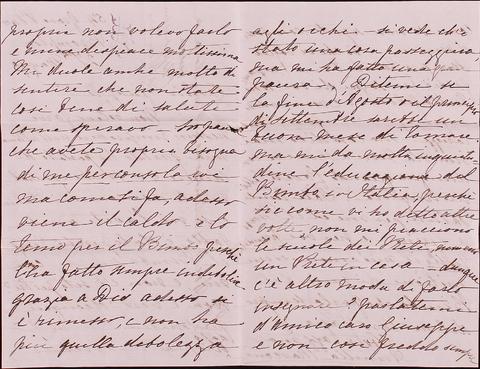 proprio non volevo farlo
e mi ne despiace moltissimo
Mi duole anche molto di
sentire che non state
così bene di salute
come speravo –
che avete proprio bisogno
di me per consolarvi
ma come si fa, adesso
viene il caldo – e lo
temo per il Bimbo perchè
l'ha fatto sempre
grazia a Dio adesso si
è rimesso, e non ha
più quella debolezza
agli occhi – si vede che è
stato una cosa passeggiera,
ma mi ha fatto una
Ditemi se
la fine d'Agosto o il principio
di Settembre sarebbe un
buon mese di
ma mi da molta
l'educazione del
Bimbo in Italia, perchè
siccome vi ho detto altre
volte, non mi piacciono
le scuole dei Preti, nemmeno
un Prete in casa – dunque
c'è altro modo di farlo
insegnare? parlatemi
d'Amico caro Giuseppe
e non con freddo sempre